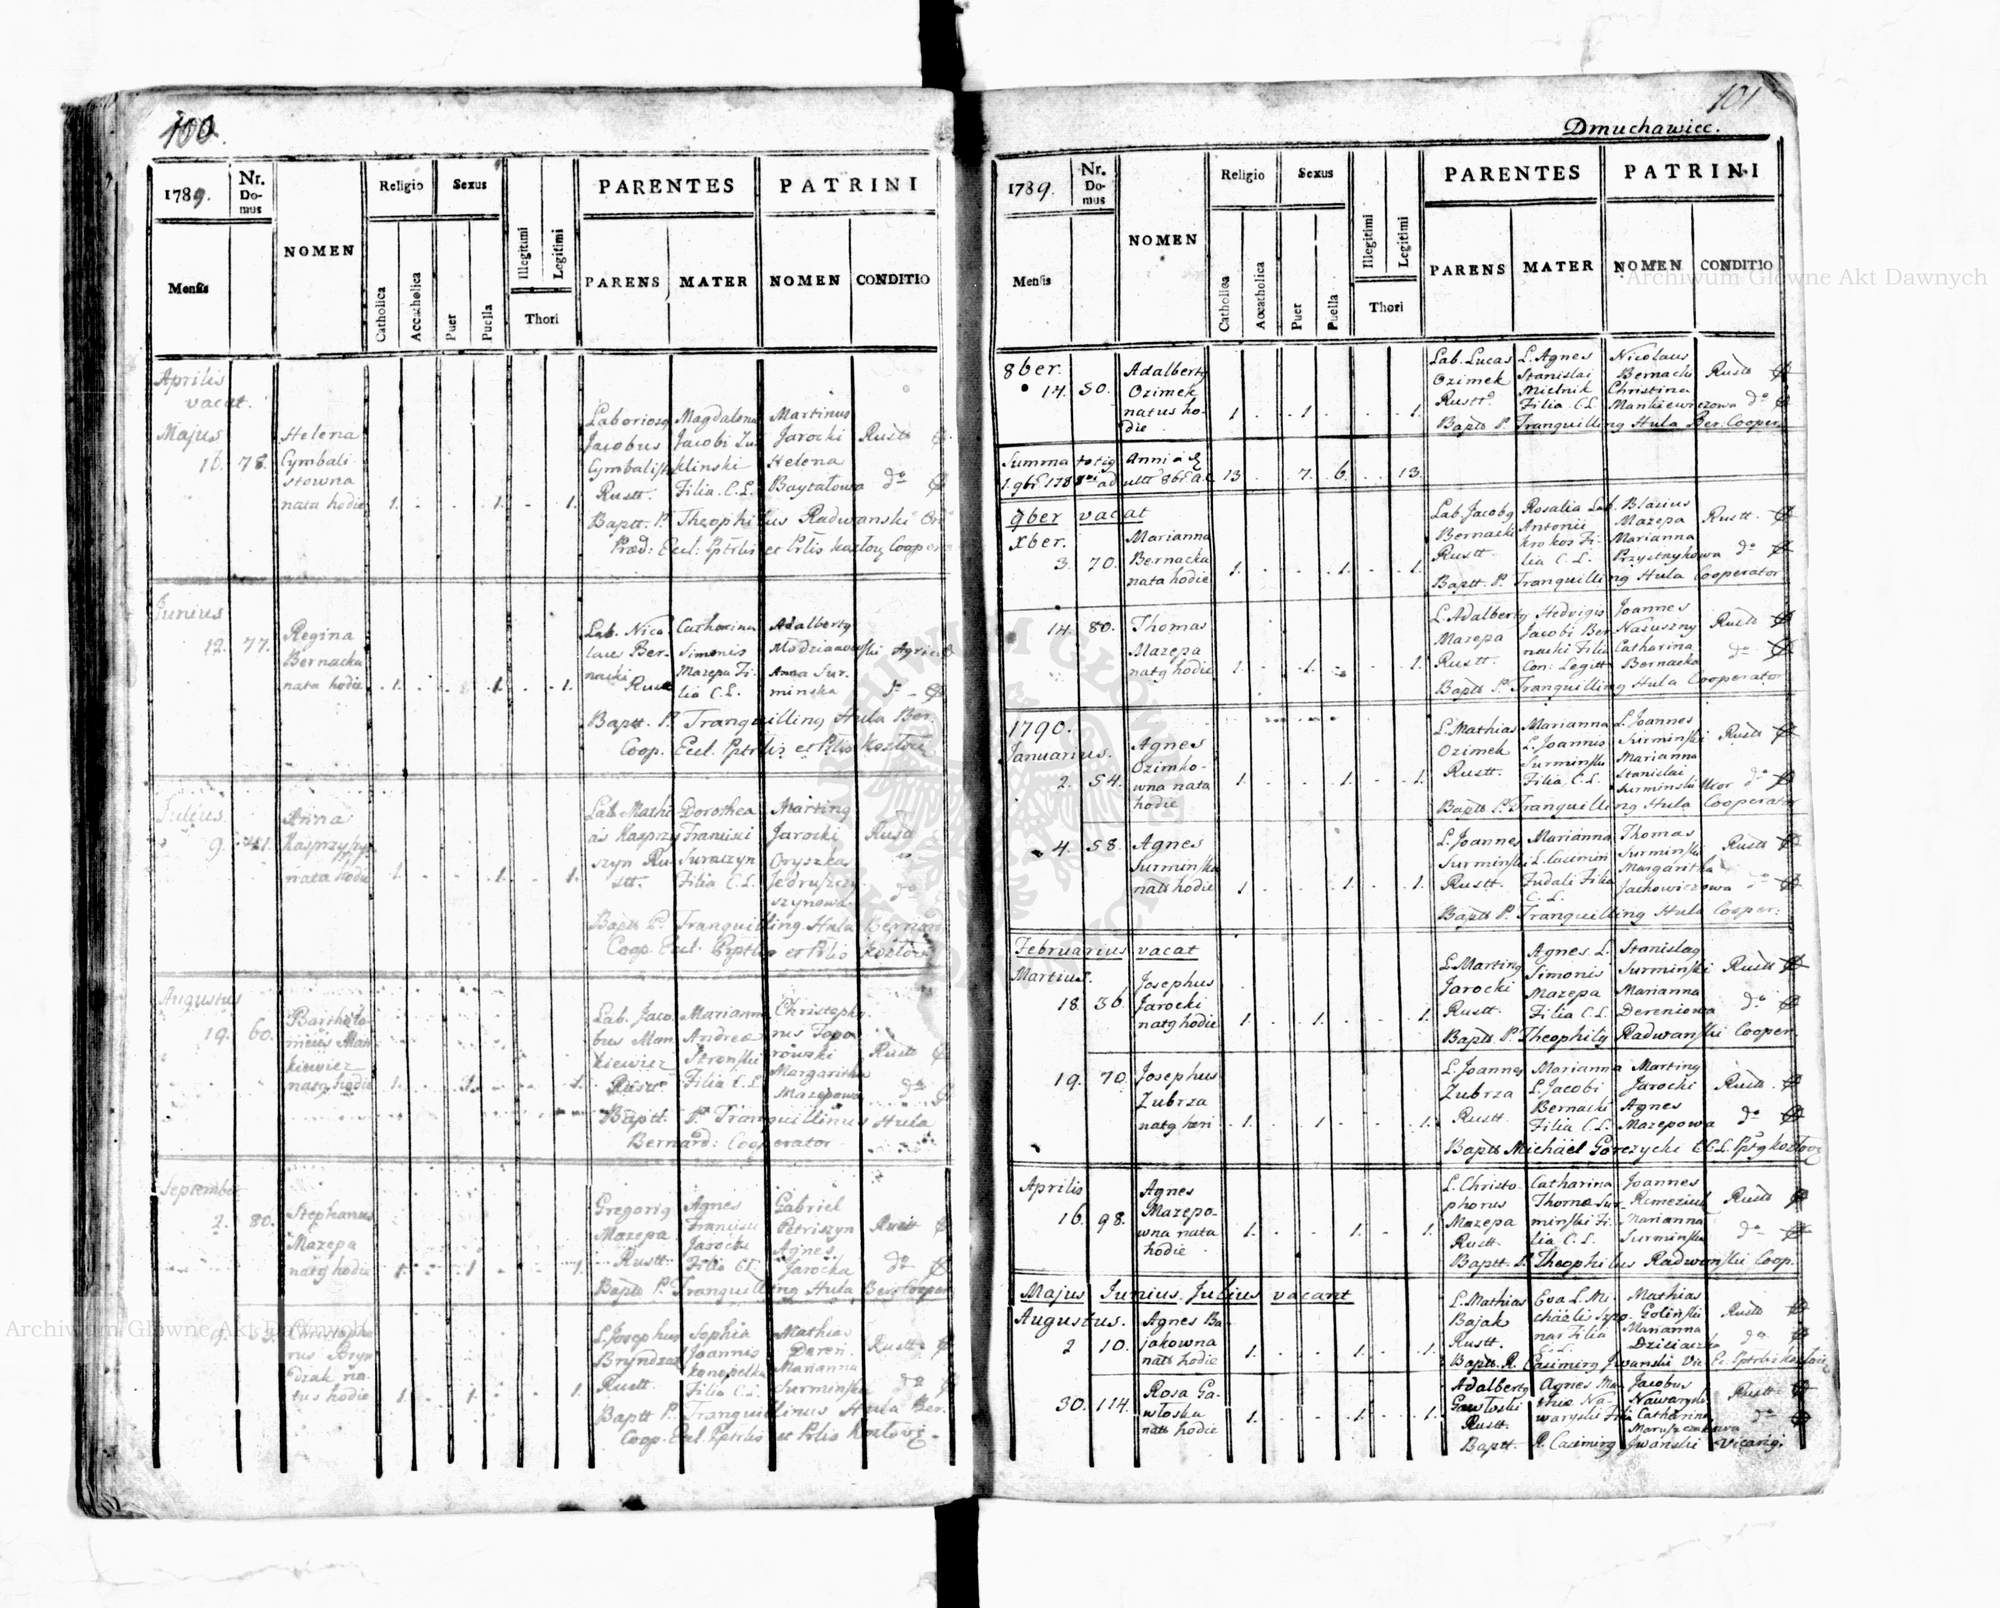 100.
1789.
Nr. Domus
Religio
Sexus
PARENTES
PATRINI
Mensis
NOMEN
Catholica
Accatholica
Puer
Puella
Illegitimi
Legitimi
Thori
PARENS
MATER
NOMEN
CONDITIO
Aprilis
vacat.
Majus
16. 78.
Helena
Cymbali-
stowna
nata hodie
1. 1. 1.
Laboriosq
Jacobus
Cymbalist
Rustt.
Magdalena
Jacobi Zu
klinski
Filia C.L.
Martinus
Jarocki
Helena
Baytalowa
Rustt
do
Baptt. P. Theophilus Radwanski Ord
Præd: Eccl: Pptrlis et Prlis kozłov Coopera
Junius
12. 77.
Regina
Bernacka
nata hodie
1. 1. 1.
Lab. Nico-
laus Ber-
nacki
Rustt
Catharina
Simonis
Mazepa Fi-
lia C.L.
Adalbertq
Modzianowski Agricola
Anna Sur-
minska
do
Baptt. P. Tranquillinq Hula Ber.
Coop. Eccl. Pptrlis et Prlis Kozłov
Julius
9. 41.
Anna
Kasprzyszy
nata hodie
1. 1. 1.
Lab. Mathi
as Kasprzy
szyn Ru-
stt.
Dorothea
Francisci
Suraczyn
Filia C.L.
Martinq
Jarocki
Oryszka
Jedruszczy-
szynowa
Rustt
do
Baptt P. Tranquillinq Hula Bernard
Coop. Eccl. Pptrlis et Prlis Kozłov
Augustus
19. 60.
Bartholo-
meus Man
kiewicz
natq hodie
1. 1. 1.
Lab. Jaco-
bus Man
kiewicz
Rustt.
Marianna
Andreæ
Stronski
Filia C.L.
Christopho-
rus Topo
rowski
Margaritha
Mazepowa
Rustt
do
Baptt. P. Tranquillinus Hula
Bernard: Cooperator
September
2. 80.
Stephanus
Mazepa
natq hodie
1. 1. 1.
Gregoriq
Mazepa
Rustt.
Agnes
Francisci
Jarocki
Filia CL.
Gabriel
Petriszyn
Agnes
Jarocka
Rustt
do
Baptt P. Tranquillinq Hula Ber. Cooper
Christopho
rus Bryn
dzak na-
tus hodie
1. 1. 1.
L. Josephus
Bryndzak
Rustt.
Sophia
Joannis
konopelka
Filia C.L.
Mathias
Dereń
Marianna
Surminska
Rustt
do
Baptt P. Tranquillinus Hula Ber.
Coop. Eccl. Pptrlis et Prlis Kozłov.
101
Dmuchawiec.
1789.
Nr. Domus
Religio
Sexus
PARENTES
PATRINI
Mensis
NOMEN
Catholica
Accatholica
Puer
Puella
Illegitimi
Legitimi
Thori
PARENS
MATER
NOMEN
CONDITIO
8ber.
14. 50.
Adalbertq
Ozimek
natus ho-
die
1. 1. 1.
Lab. Lucas
Ozimek
Rustt.
L. Agnes
Stanislai
Mielnik
Filia C.L.
Nicolaus
Bernacki
Christina
Mankiewiczowa
Rustt
do
Baptt P. Tranquillinq Hula Ber. Cooper.
Summa totiq Anni
13. 7. 6. 13.
9ber vacat
Xber.
3. 70.
Marianna
Bernacka
nata hodie
1. 1. 1.
Lab. Jacobq
Bernacki
Rustt.
Rosalia Lab.
Antonii
krokos Fi-
lia C.L.
Blasius
Mazepa
Marianna
Przystaykowa
Rustt.
do
Baptt. P. Tranquillinq Hula Cooperator
14. 80.
Thomas
Mazepa
natq hodie
1. 1. 1.
L. Adalbertq
Mazepa
Rustt.
Hedvigis
Jacobi Ber
nacki Filia
Con: Legitt
Joannes
Nasuszny
Catharina
Bernacka
Rustt
do
Baptt P. Tranquillinq Hula Cooperator
1790.
Januarius.
2. 54.
Agnes
Ozimko-
wna nata
hodie
1. 1. 1.
L. Mathias
Ozimek
Rustt.
Marianna
L. Joannis
Surminski
Filia C.L.
L. Joannes
Surminski
Marianna
Stanislai
Surminski Uxor
Rustt
do
Baptt P. Tranquillinq Hula Cooperator
4. 58.
Agnes
Surminska
nata hodie
1. 1. 1.
L. Joannes
Surminski
Rustt.
Marianna
L. Casimiri
Fudali Filia
C.L.
Thomas
Surminski
Margaritha
Jachowiczowa
Rustt
do
Baptt P. Tranquillinq Hula Cooper:
Februarius vacat
Martius.
18. 36.
Josephus
Jarocki
natq hodie
1. 1. 1.
L. Martinq
Jarocki
Rustt.
Agnes L.
Simonis
Mazepa
Filia C.L.
Stanislaq
Surminski
Marianna
Dereniowa
Rustt
do
Baptt. P. Theophilq Radwanski Cooper.
19. 70.
Josephus
Zubrza
natq heri
1. 1. 1.
L. Joannes
Zubrza
Rustt.
Marianna
L. Jacobi
Bernacki
Filia C.L.
Martinq
Jarocki
Agnes
Mazepowa
Rustt.
do
Baptt Michael Górczycki C.L. Pptq kozłov
Aprilis
16. 98.
Agnes
Mazepo-
wna nata
hodie
1. 1. 1.
L. Christo-
phorus
Mazepa
Rustt.
Catharina
Thomæ Sur-
minski Fi-
lia C.L.
Joannes
Remeziuk
Marianna
Surminska
Rustt
do
Baptt. P. Theophilus Radwanski Coop.
Majus Junius. Julius vacant
Augustus.
2 10.
Agnes Ba-
jakowna
nata hodie
1. 1. 1.
L. Mathias
Bajak
Rustt.
Eva L. Mi-
chaelis Szpo-
nar Filia
C.L.
Mathias
Goliński
Marianna
Dziciaczka
Rustt
do
Baptt. R. Casimirq Jwanski
30. 114.
Rosa Ga-
włoska
nata hodie
1. 1. 1.
Adalbertq
Gawłoski
Rustt.
Agnes Ma-
thiæ Na-
waryski Filia
Jacobus
Nawaryski
Catharina
Rustt.
do
Baptt. R. Casimirq Jwanski Vicariq.
Archiwum Główne Akt Dawnych
Archiwum Główne Akt Dawnych